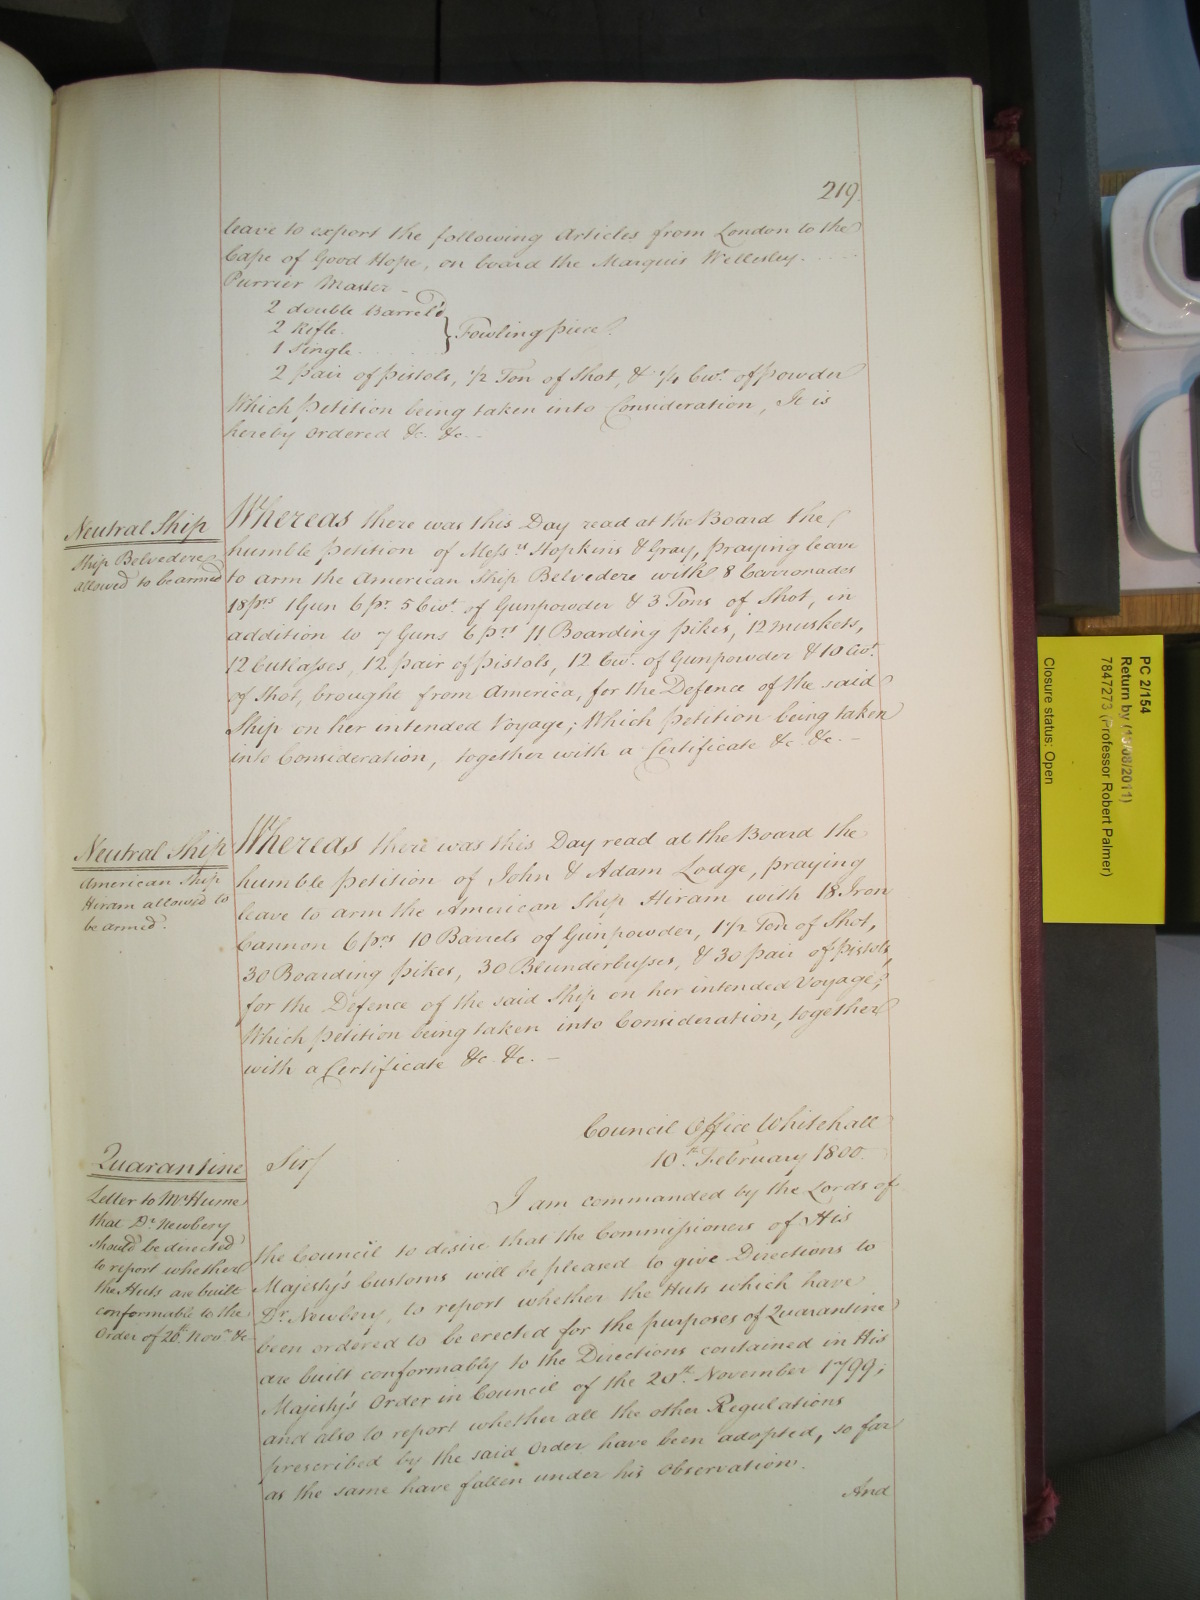 219.
leave to export the following Articles from London to the
Cape of Good Hope, on board the Marquis Wellesley.
Purrier Master -
2 double Barrel'd
2 Rifle.
1 Single.
} Fowling pieces.
2 pair of pistols, 1/2 Ton of Shot, & 1/4 Cwt. of powder
Which Petition being taken into Consideration, It is
hereby ordered &c. &c. -
Neutral Ship
Ship Belvedere
allowed to be armed
Whereas there was this Day read at the Board the
humble Petition of Messrs Hopkins & Gray, praying leave
to arm the American Ship Belvedere with 8 Carronades
18 prs 1 Gun 6 pr. 5 Cwt. of Gunpowder & 3 Tons of Shot, in
addition to 7 Guns 6 prs 11 Boarding pikes, 12 muskets,
12 Cutlasses, 12 pair of pistols, 12 Cwt. of Gunpowder & 10 Cwt.
of Shot, brought from America, for the Defence of the said
Ship on her intended Voyage; Which Petition being taken
into Consideration, together with a Certificate &c. &c. -
Neutral Ship
American Ship
Hiram allowed to
be armed.
Whereas there was this Day read at the Board the
humble Petition of John & Adam Lodge, praying
leave to arm the American Ship Hiram with 18 Iron
Cannon 6 prs 10 Barrels of Gunpowder, 1 1/2 Ton of Shot,
30 Boarding pikes, 30 Blunderbusses, & 30 pair of pistols,
for the Defence of the said Ship on her intended Voyage;
Which Petition being taken into Consideration, together
with a Certificate &c. &c. -
Council Office Whitehall
10th February 1800.
Quarantine
Letter to Mr Hume
that Dr. Newbery
should be directed
to report whether
the Huts are built
conformable to the
Order of 20th Novr. &c
Sir/
I am commanded by the Lords of
the Council to desire that the Commissioners of His
Majesty's Customs will be pleased to give Directions to
Dr. Newbery, to report whether the Huts which have
been ordered to be erected for the purposes of Quarantine
are built conformably to the Directions contained in His
Majesty's Order in Council of the 20th November 1799;
and also to report whether all the other Regulations
prescribed by the said Order have been adopted, so far
as the same have fallen under his Observation.
And
PC 2/154
Return by (13/08/2011)
7847273 (Professor Robert Palmer)
Closure status: Open